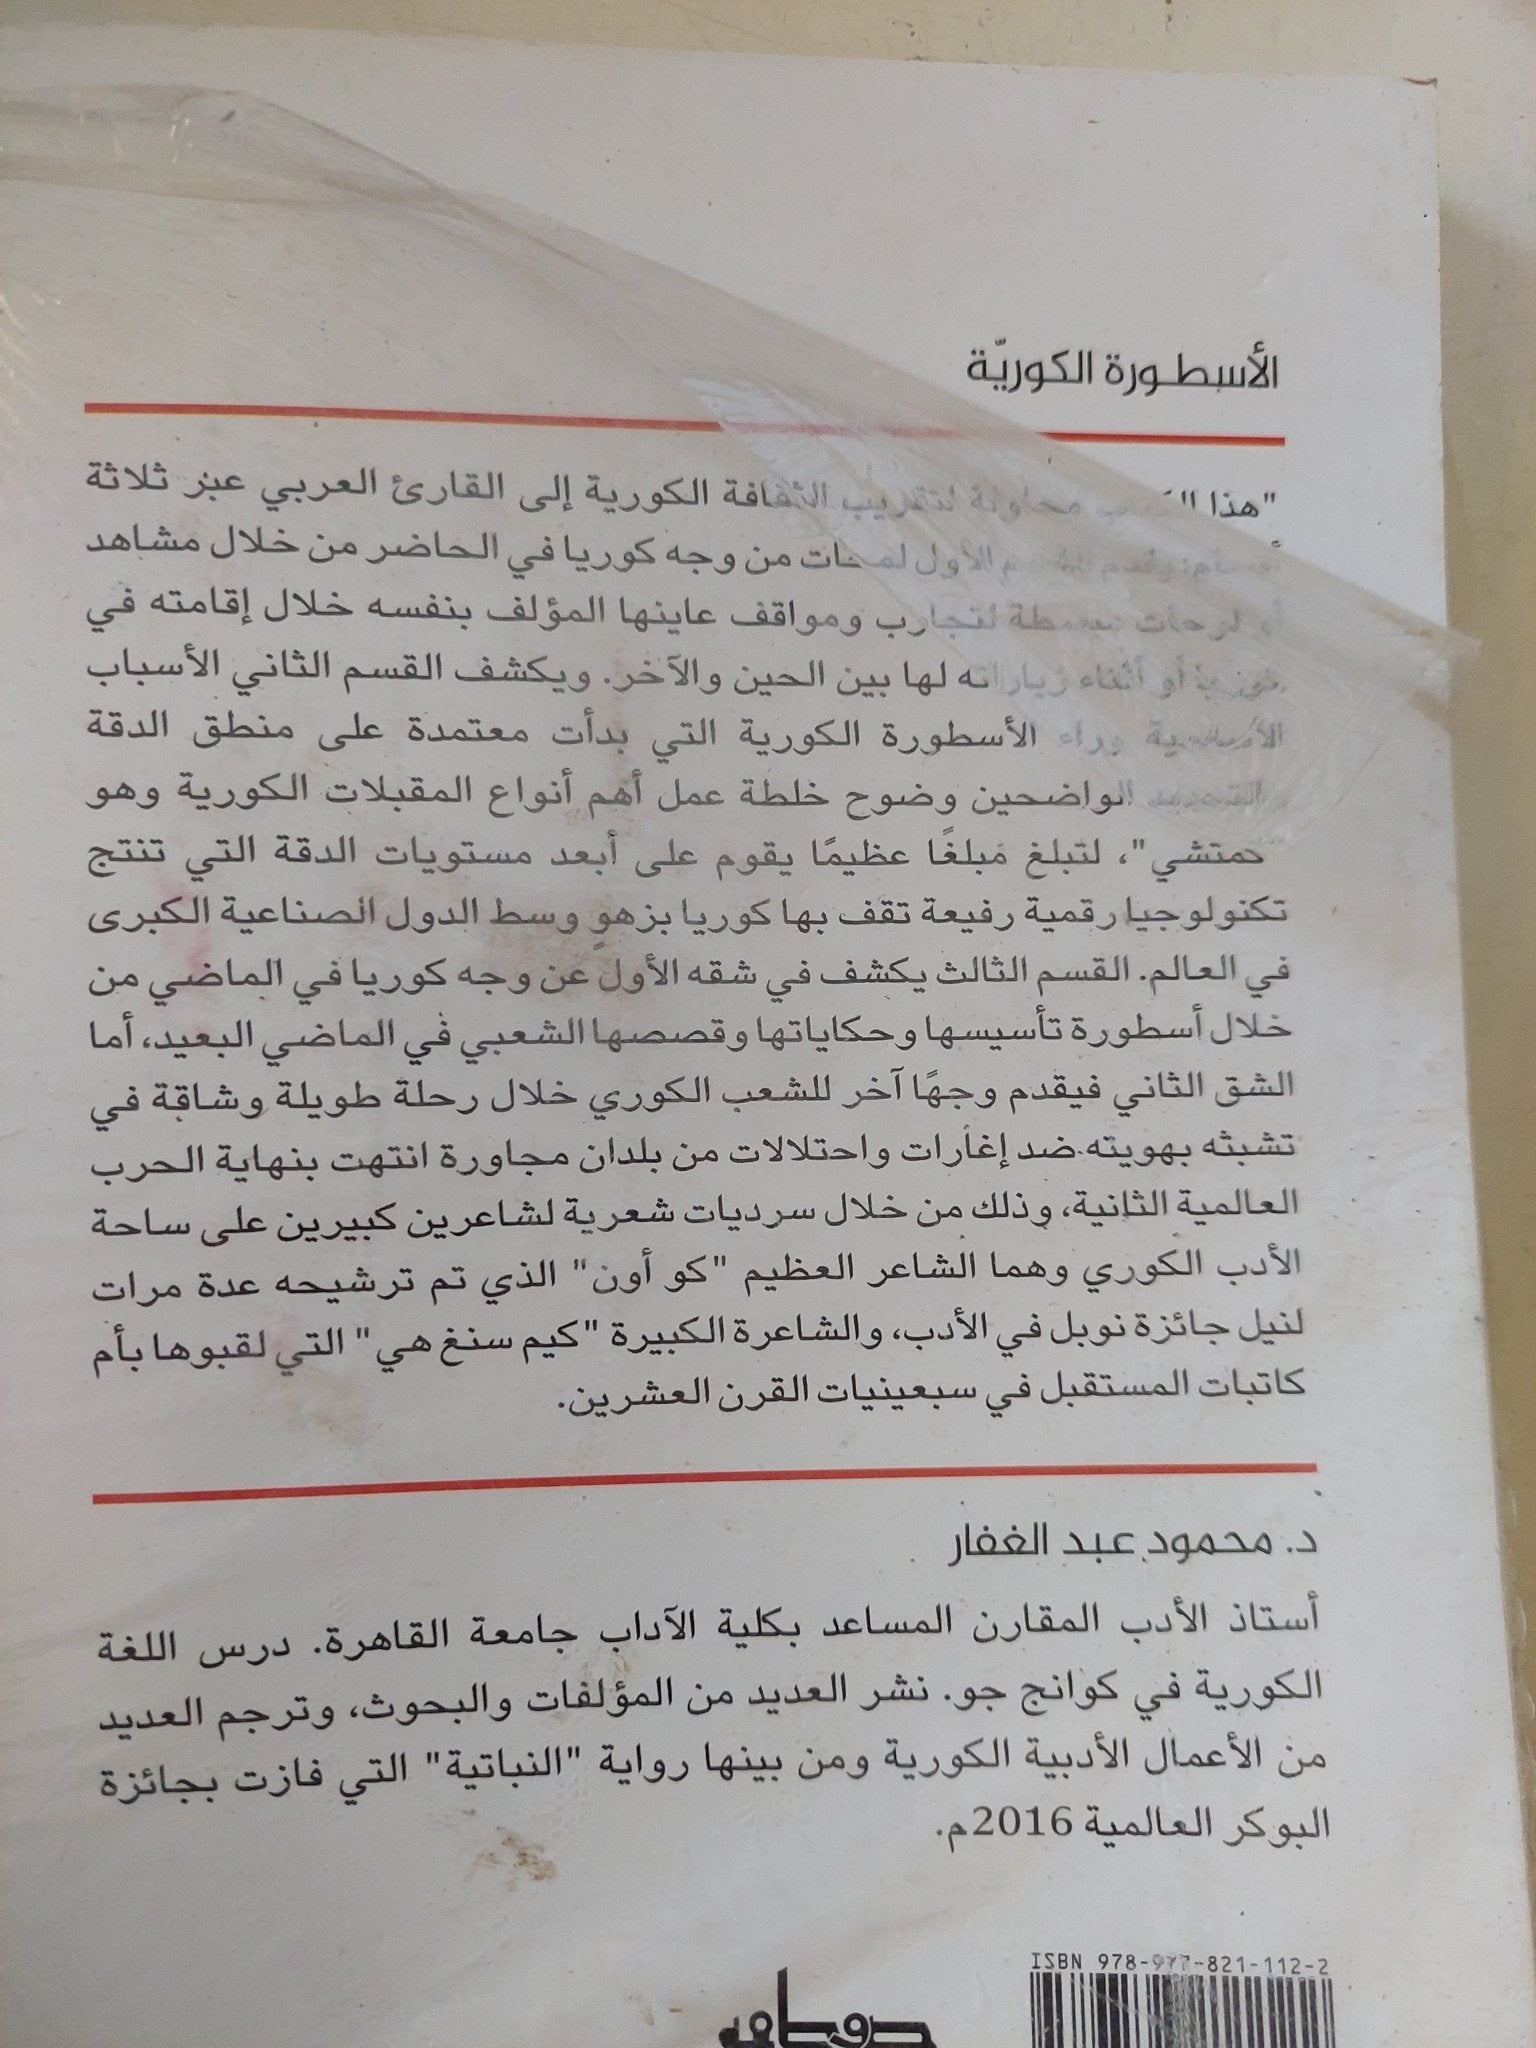 الأسطورة الكوريّة
"هذا محاولة لتقريب الثقافة الكورية إلى القارئ العربي عبر ثلاثة
الأول لمحات من وجه كوريا في الحاضر من خلال مشاهد
لتجارب ومواقف عاينها المؤلف بنفسه خلال إقامته في
أو أثناء زياراته لها بين الحين والآخر. ويكشف القسم الثاني الأسباب
وراء الأسطورة الكورية التي بدأت معتمدة على منطق الدقة
الواضحين وضوح خلطة عمل أهم أنواع المقبلات الكورية وهو
لتبلغ مَبلغًا عظيمًا يقوم على أبعد مستويات الدقة التي تنتج
تكنولوجيا رقمية رفيعة تقف بها كوريا بزهوٍ وسط الدول الصناعية الكبرى
في العالم. القسم الثالث يكشف في شقه الأول عن وجه كوريا في الماضي من
خلال أسطورة تأسيسها وحكاياتها وقصصها الشعبي في الماضي البعيد، أما
الشق الثاني فيقدم وجهًا آخر للشعب الكوري خلال رحلة طويلة وشاقة في
تشبثه بهويته ضد إغارات واحتلالات من بلدان مجاورة انتهت بنهاية الحرب
العالمية الثانية، وذلك من خلال سرديات شعرية لشاعرين كبيرين على ساحة
الأدب الكوري وهما الشاعر العظيم "كو أون" الذي تم ترشيحه عدة مرات
لنيل جائزة نوبل في الأدب، والشاعرة الكبيرة "كيم سنغ هي" التي لقبوها بأم
كاتبات المستقبل في سبعينيات القرن العشرين.
د. محمود عبد الغفار
أستاذ الأدب المقارن المساعد بكلية الآداب جامعة القاهرة. درس اللغة
الكورية في كوانج جو. نشر العديد من المؤلفات والبحوث، وترجم العديد
من الأعمال الأدبية الكورية ومن بينها رواية "النباتية" التي فازت بجائزة
البوكر العالمية 2016م.
ISBN 978-977-821-112-2